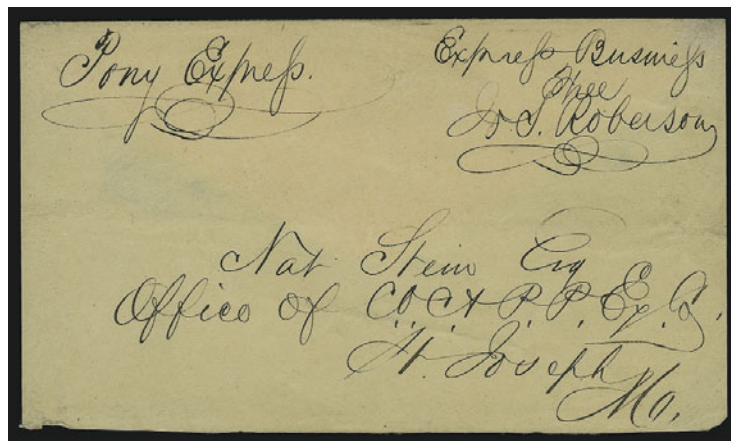 Pony Express.
Express Business
Free
S. Roberson
Nat Stein Esq
Office of C.O.C. & P.P. Ex. Co.
St. Joseph
Mo.